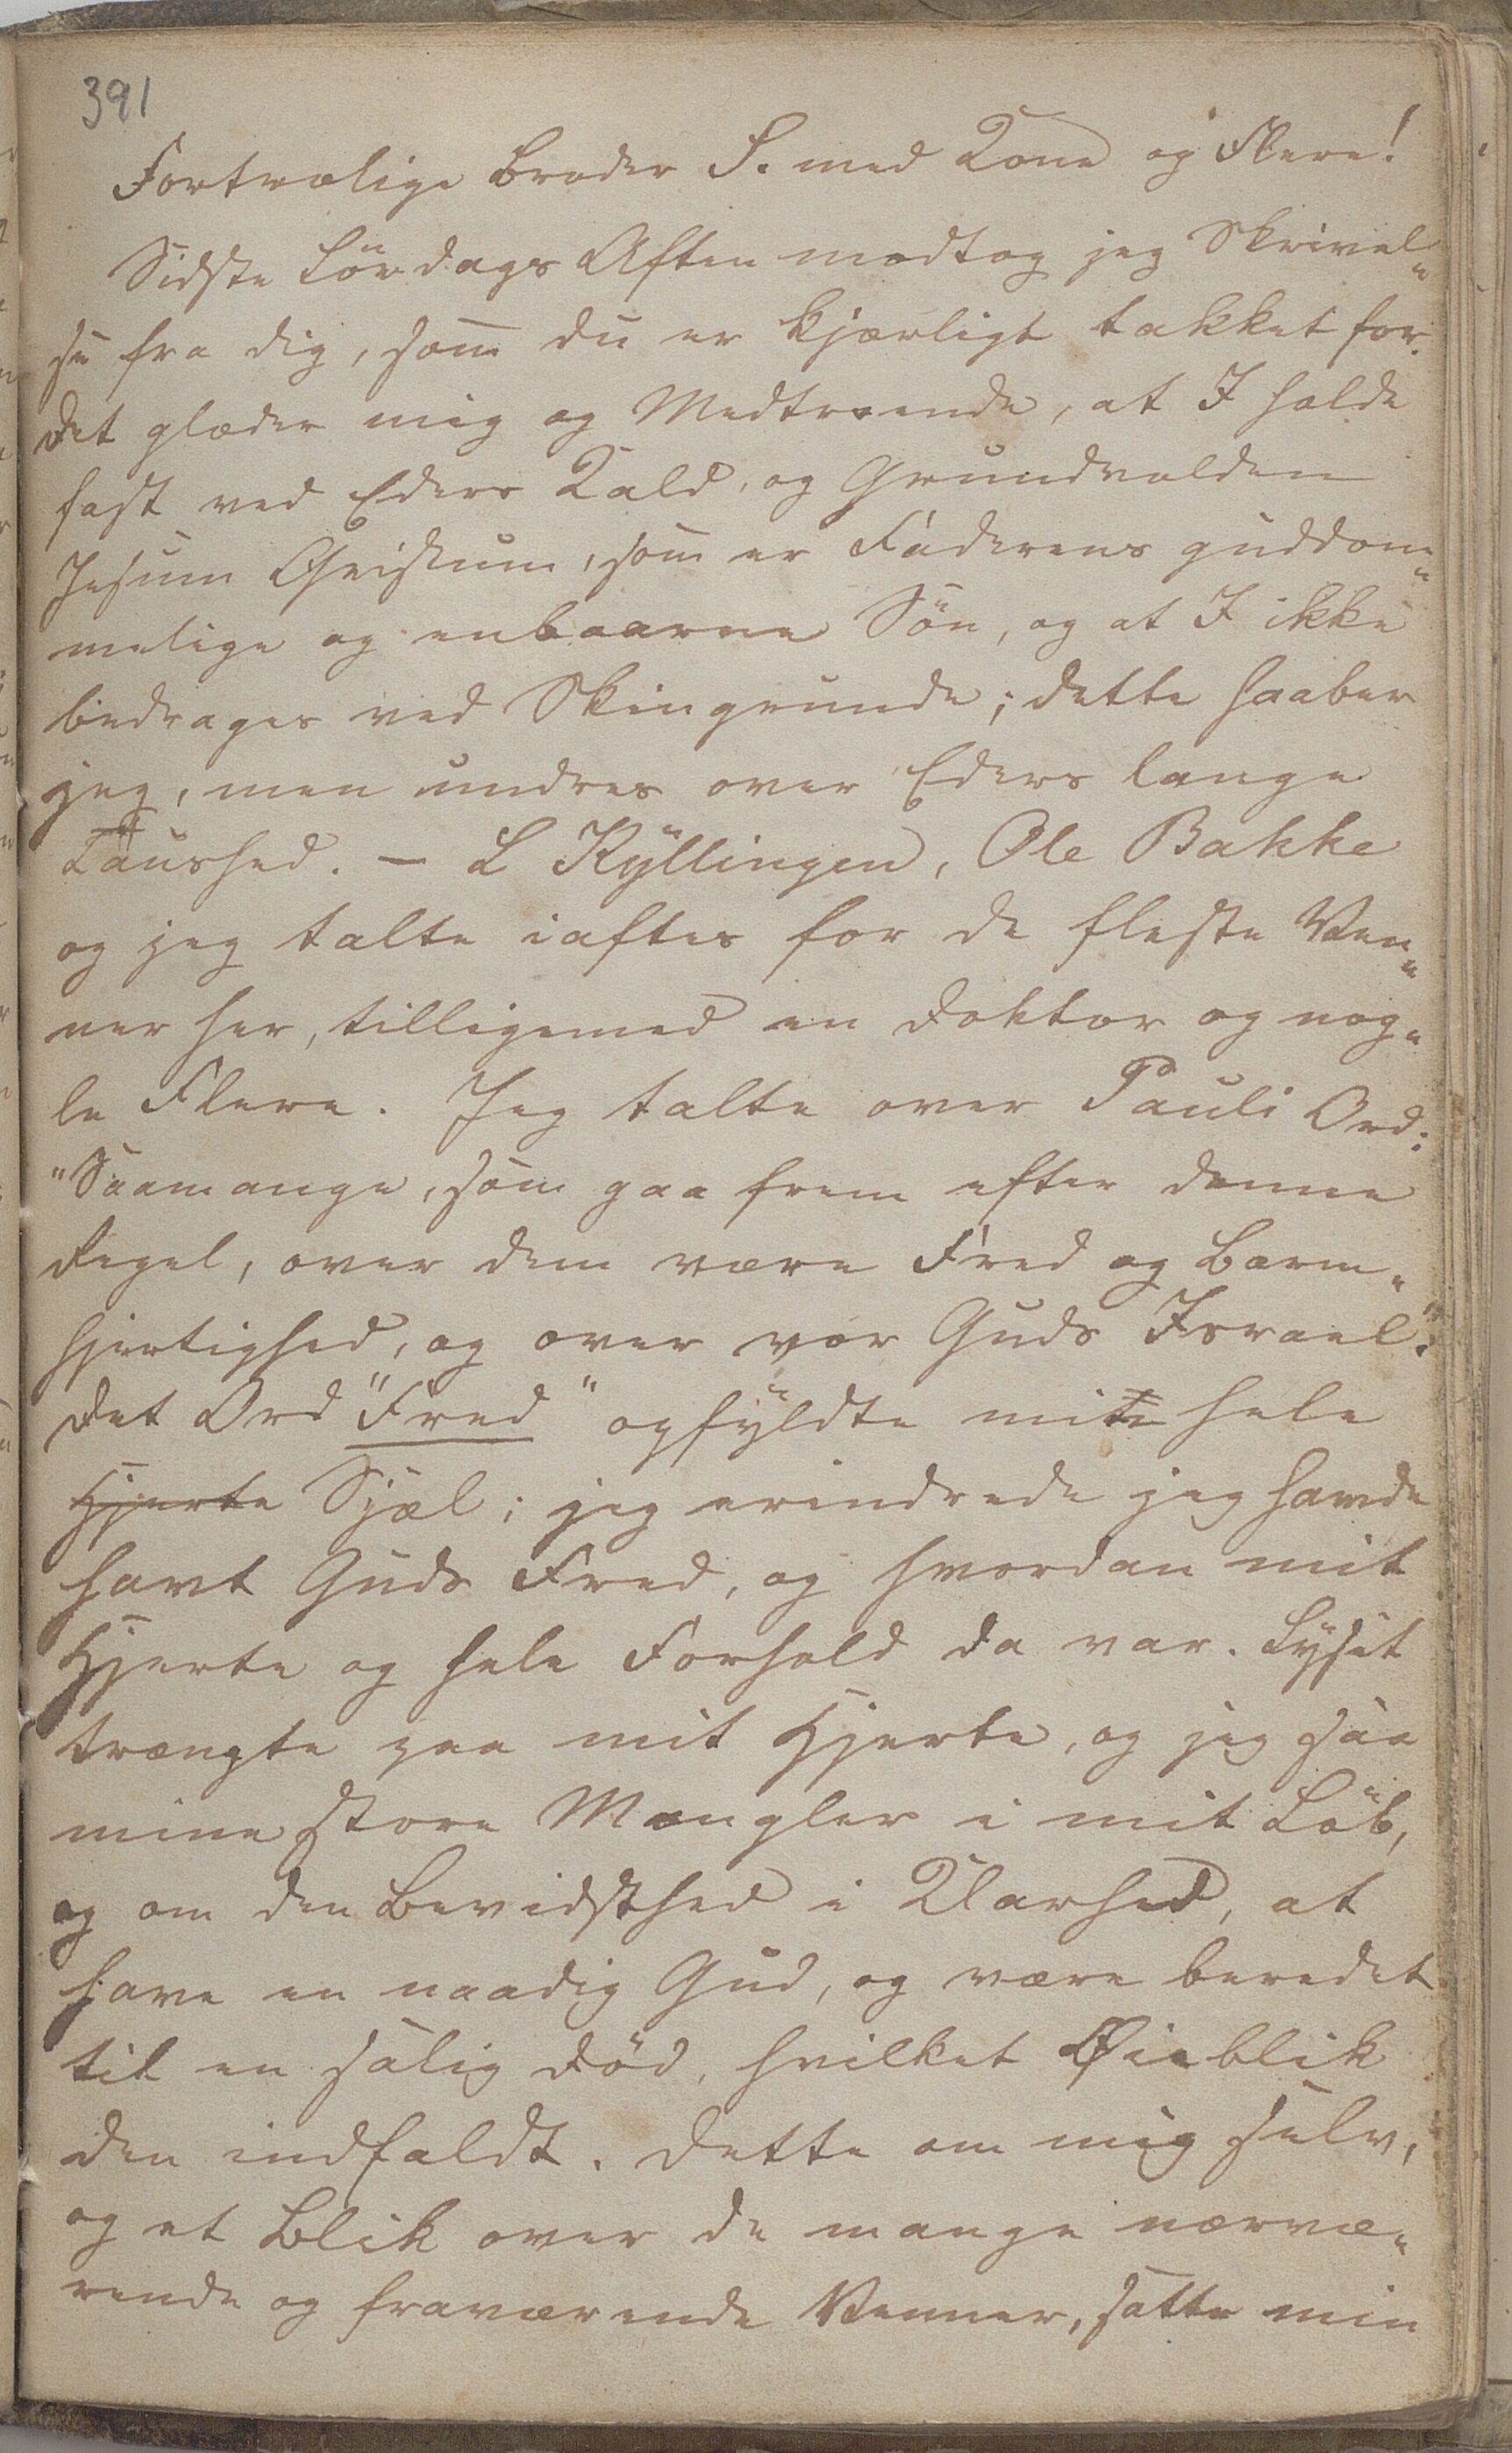 391
Fortrolige Broder S. med Kone og Flere!
Sidste Lördags Aften modtog jeg Skrivel„
se fra dig, som du er kjærligt takket for.
Det glæder mig og Medtroende, at I holde
fast ved Eders Kald, og Grundvolden
Jesum Christum, som er Faderens guddom„
melige og enbaarne Sön, og at I ikke
bedrages ved Skingrunde; dette haaber
jeg, men undres over Eders lange
Taushed. – L Kyllingen, Ole Bakke
og jeg talte iaftes for de fleste Ven„
ner her, tilligemed en Doktor og nog„
le Flere. Jeg talte over Pauli Ord:
"Saamange, som gaa frem efter denne
Regel, over dem være Fred og Barm„
hjertighed, og over vor Guds Israel".
Det Ord "Fred" opfyldte mit hele
Hjerte Sjæl; jeg erindrede jeg havde
havt Guds Fred, og hvordan mit
Hjerte og hele Forhold da var. Lyset
trængte paa mit Hjerte, og jeg saa
mine store Mangler i mit Löb,
og om den Bevidsthed i Klarhed, at
have en naadig Gud, og være beredet
til en salig Död, hvilket Øieblik
den indfaldt. Dette om mig selv,
og et Blik over de mange nærvæ„
rende og fraværende Venner, satte min